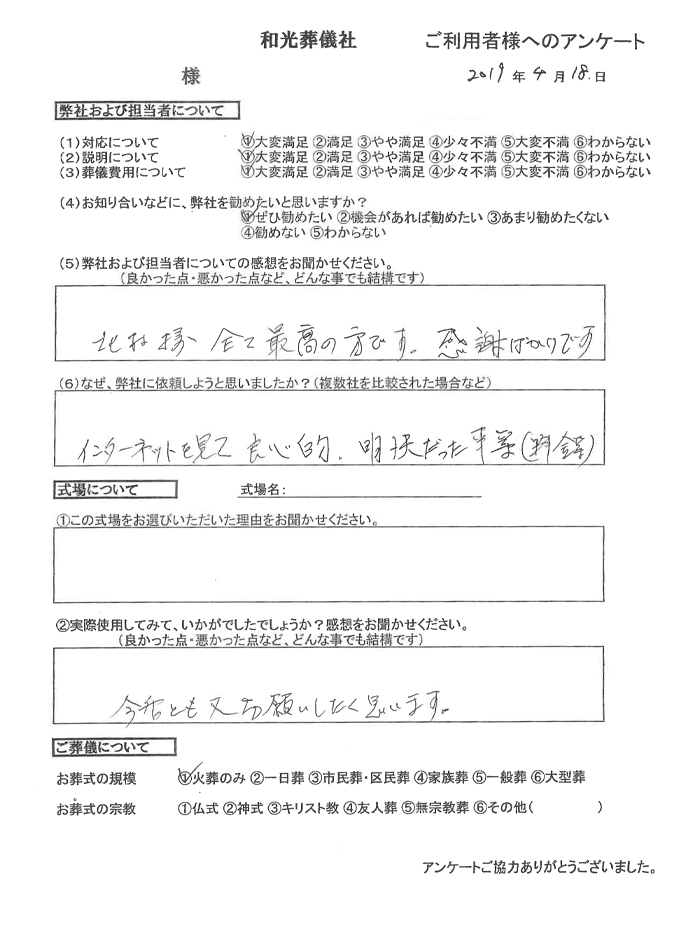 和光葬儀社 ご利用者様へのアンケート
様 2019年4月18日
弊社および担当者について
(1)対応について ①大変満足 ②満足 ③やや満足 ④少々不満 ⑤大変不満 ⑥わからない
(2)説明について ①大変満足 ②満足 ③やや満足 ④少々不満 ⑤大変不満 ⑥わからない
(3)葬儀費用について ①大変満足 ②満足 ③やや満足 ④少々不満 ⑤大変不満 ⑥わからない
(4)お知り合いなどに、弊社を勧めたいと思いますか?
①ぜひ勧めたい ②機会があれば勧めたい ③あまり勧めたくない
④勧めない ⑤わからない
(5)弊社および担当者についての感想をお聞かせください。
(良かった点・悪かった点など、どんな事でも結構です)
北村様 全て最高の方です。感謝ばかりです
(6)なぜ、弊社に依頼しようと思いましたか?(複数社を比較された場合など)
インターネットを見て 良心的、明快だった(料金等)
式場について 式場名:
①この式場をお選びいただいた理由をお聞かせください。
②実際使用してみて、いかがでしたでしょうか?感想をお聞かせください。
(良かった点・悪かった点など、どんな事でも結構です)
今后とも又お願いしたく思います。
ご葬儀について
お葬式の規模 ①火葬のみ ②一日葬 ③市民葬・区民葬 ④家族葬 ⑤一般葬 ⑥大型葬
お葬式の宗教 ①仏式 ②神式 ③キリスト教 ④友人葬 ⑤無宗教葬 ⑥その他( )
アンケートご協力ありがとうございました。